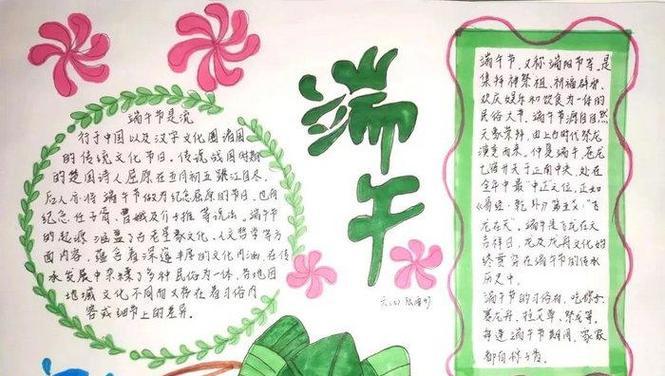 端午节是流
行于中国以及汉字文化圈诸国
的传统文化节日,传说战国时期
的楚国诗人屈原在五月初五跳江自尽,
后人亦将端午节做为纪念屈原的节日,也有
纪念伍子胥、曹娥及介子推等说法。端午节
的起源涵盖了古老星象文化、人文哲学等方
面内容,蕴含着深邃丰厚的文化内涵,在传
承发展中杂糅了多种民俗为一体,各地因
地域文化不同而又存在着习俗内
容或细节上的差异。
端午
端午节,又称端阳节等,是
集拜神祭祖、祈福辟邪、
欢庆娱乐和饮食为一体的
民俗大节。端午节源自自然
天象崇拜,由上古时代祭龙
演变而来。仲夏端午,苍龙
七宿升天于正南中央,处在
全年中最"中正"之位,正如
《易经·乾卦》第五爻:"飞
龙在天"。端午是飞龙在天
吉祥日,龙及龙舟文化的
终贯穿在端午节的传承
历史中。
端午节的习俗有:吃粽子、
赛龙舟、挂艾草、
每逢端午节期间,家家